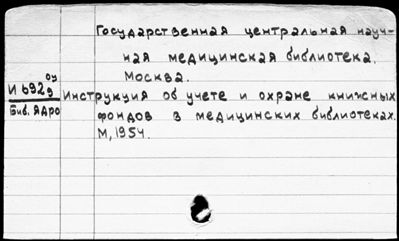 Государственная центральная науч-
ная медицинская библиотека.
Москва.
оу
И 692д Инструкция об учете и охране книжных
Биб. Ядро фондов в медицинских библиотеках.
М, 1954.